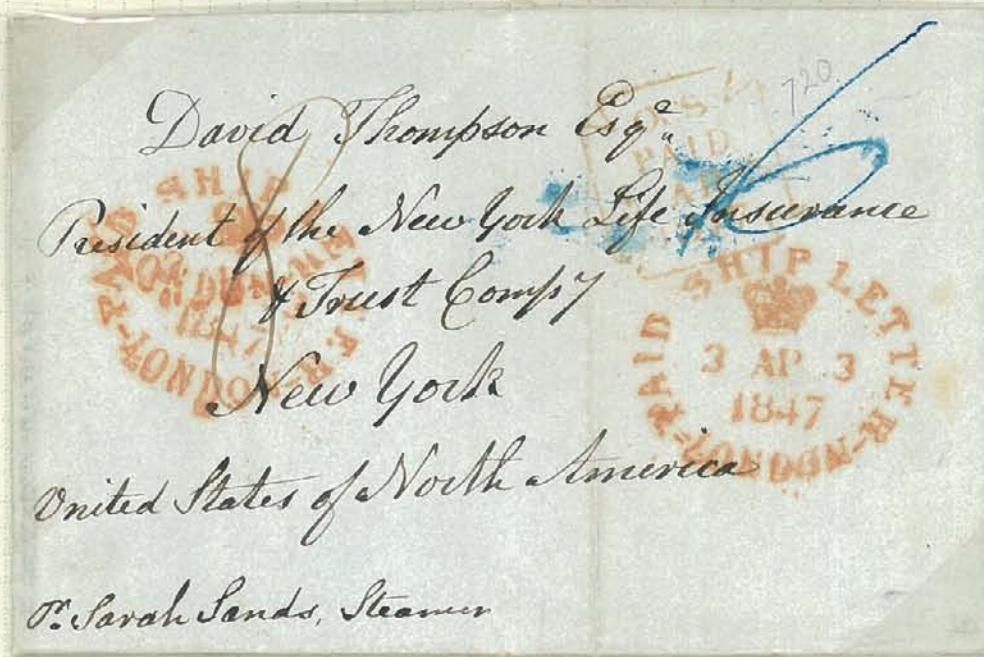 David Thompson Esqe
President of the New York Life Insurance
& Trust Compy
New York
United States of North America
Pr. Sarah Sands, Steamer
720
PAID
SHIP
1847
LONDON
PAID SHIP LETTER LONDON
3 AP 3
1847